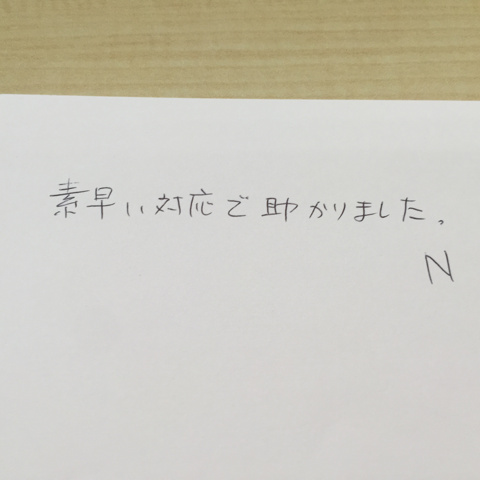 素早い対応で助かりました。
N